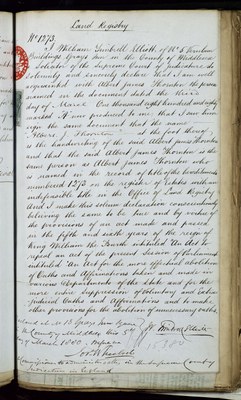 Land Registry
No 1273.
I William Grinhill Elliott of No 6 Verulam
Buildings Grays Inn in the County of Middlesex
Solicitor of the Supreme Court of Judicature do
solemnly and sincerely declare that I am well
acquainted with Albert James Thornton the person
named in the document dated the third
day of March One thousand eight hundred and eighty
marked A now produced to me that I saw him
sign the same document that the name
"Albert J. Thornton" at the foot thereof
is the handwriting of the said Albert James Thornton
and that the said Albert James Thornton is the
same person as Albert James Thornton who
is named in the record of title of the land
numbered 1273 on the register of Estates with an
indefeasible title in the Office of Land Registry
And I make this solemn declaration conscientiously
believing the same to be true and by virtue of
the provisions of an act made and passed
in the fifth and sixth years of the reign of
King William the Fourth intituled "An Act to
repeal an act of the present Session of Parliament
intituled "An Act for the more effectual abolition
of Oaths and Affirmations taken and made in
various Departments of the State and for the
more entire suppression of Voluntary and Extra
judicial Oaths and Affirmations and to make
other provisions for the abolition of unnecessary oaths.
Grays Inn
in the County of Middlesex this
day of March 1880. Before